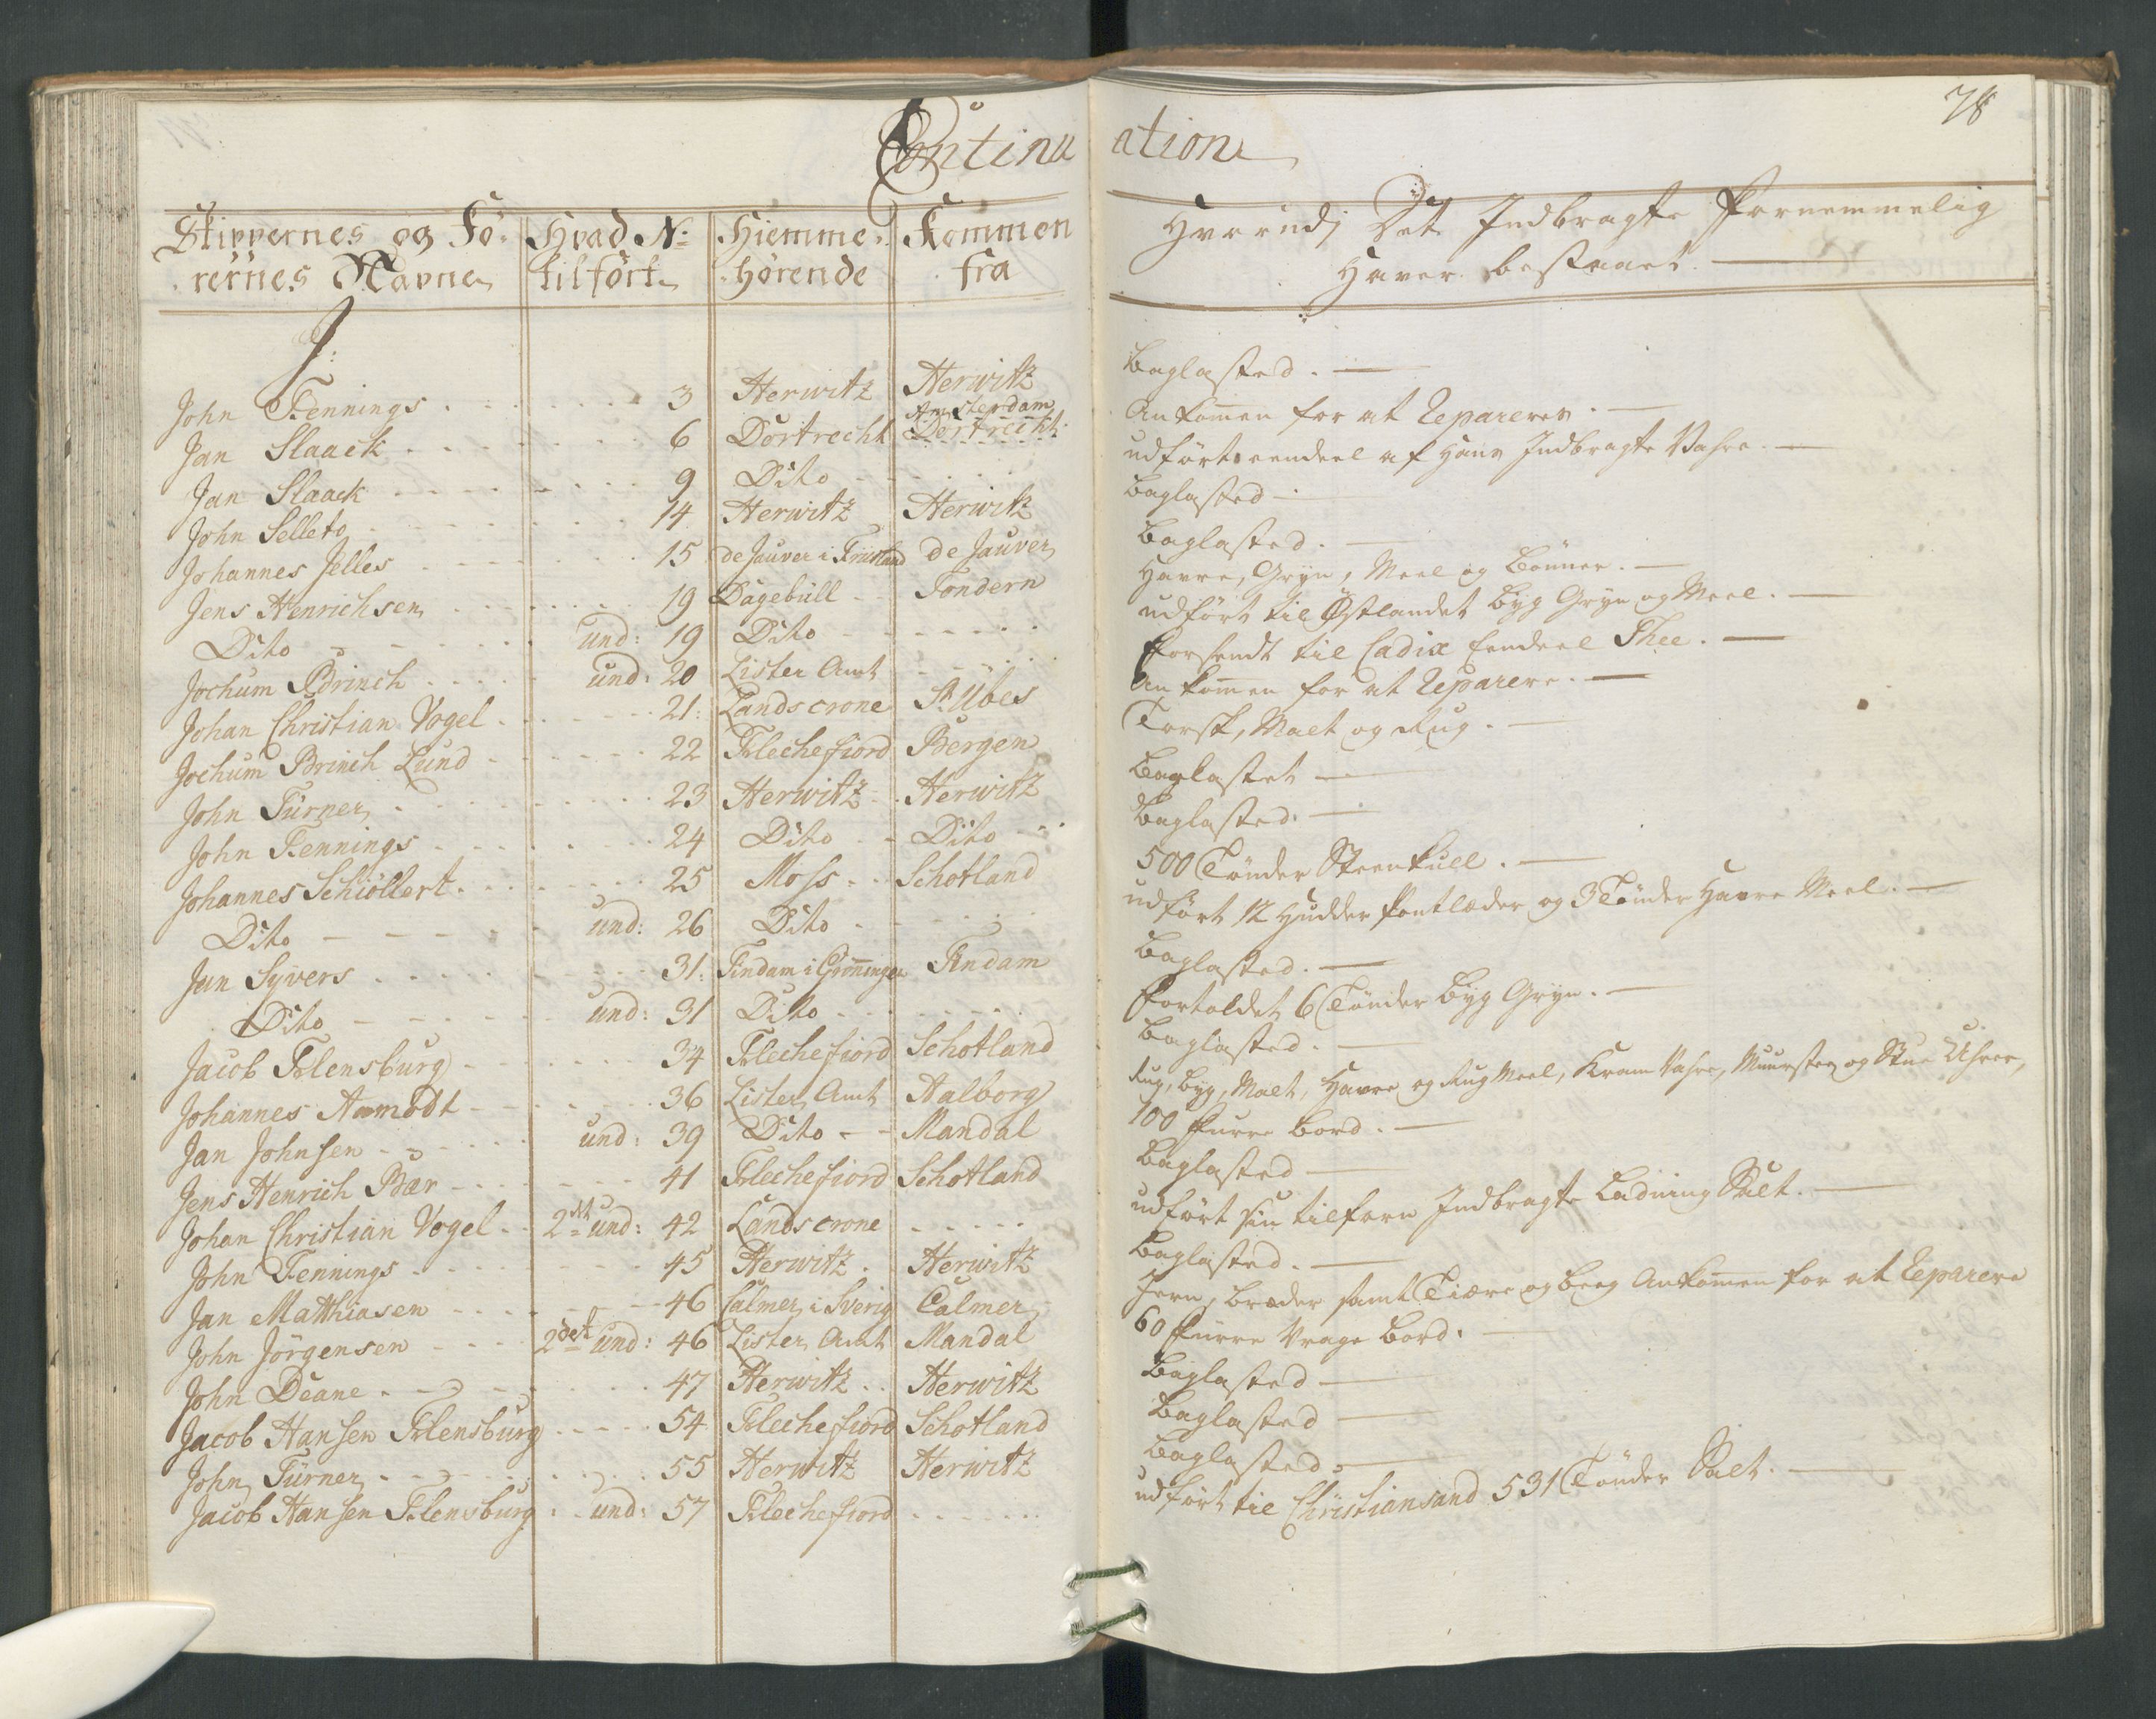 78
Continuation
Skippernes og Fö- Hvad No Hiemme- Kommen Hvorudj Det Indbragte fornemmelig
rernes Navne tilfört hörende fra Haver bestaaet.
J:
John Fennings 3 Herwitz Herwitz Baglasted.
Amsterdam
Jan Slaack 6 Dortrecht Dortrecht Ankommen for at Reparere.
Jan Slaack 9 Dito udfört eendeel af Hans Indbragte Vahre.
John Selleto 14 Herwitz Herwitz Baglasted
Johannes Jelles 15 de Jauver i Frisland de Jauver Baglasted.
Jens Henrichsen 19 Dagebüll Tondern Havre, Gryn, Meel og Bönner.
Dito und: 19 Dito udfört til Östlandet Byg Gryn og Meel.
Jochum Brinch und: 20 Lister Amt forsendt til Cadix Eendeel Thee.
Johan Christian Vogel 21: Landscrone St Ubes Ankommen for at Reparere.
Jochum Brinch Lund 22 Flechefiord Bergen Torsk, Malt og Rug.
John Turner 23 Herwitz Herwitz Baglastet
John Fennings 24 Dito Dito Baglasted.
Johannes Schiöllert 25 Moss Schotland 500 Tönder Steenkull.
Dito und: 26 Dito udfört 12 Hudder Pontlæder og 3 Tönder Havre Meel.
Jan Syvers 31: Findam i Gröningen Findam Baglasted.
Dito und: 31 Dito fortoldet 6 Tönder Byg Gryn.
Jacob Flensburg 34 Flechefiord Schotland Baglasted.
Johannes Aamodt 36 Lister Amt Aalborg Rug, Byg, Malt, Havre og Rug Meel, Kram Vahre, Muursteen og Stue Uhrer,
Jan Johnsen und: 39 Dito Mandal 100 furre Bord.
Jens Henrich Bær 41 Flechefiord Schotland Baglasted
Johan Christian Vogel 2det und: 42 Landscrone udfört sin tilforn Indbragte Ladning Salt.
John Fennings 45 Herwitz Herwitz Baglasted.
Jan Matthiasen 46 Calmer i Sverig Calmer Jern, Bræder samt Tiære og Beeg Ankommen for at Reparere
John Jörgensen 2det und: 46 Lister Amt Mandal 60 furre Vrage Bord.
John Deane 47 Herwitz Herwitz Baglasted
Jacob Hansen Flensburg 54 Flechefiord Schotland Baglasted
John Turner 55 Herwitz Herwitz Baglasted
Jacob Hansen Flensburg und: 57 Flechefiord udfört til Christiansand 531 Tönder Salt.